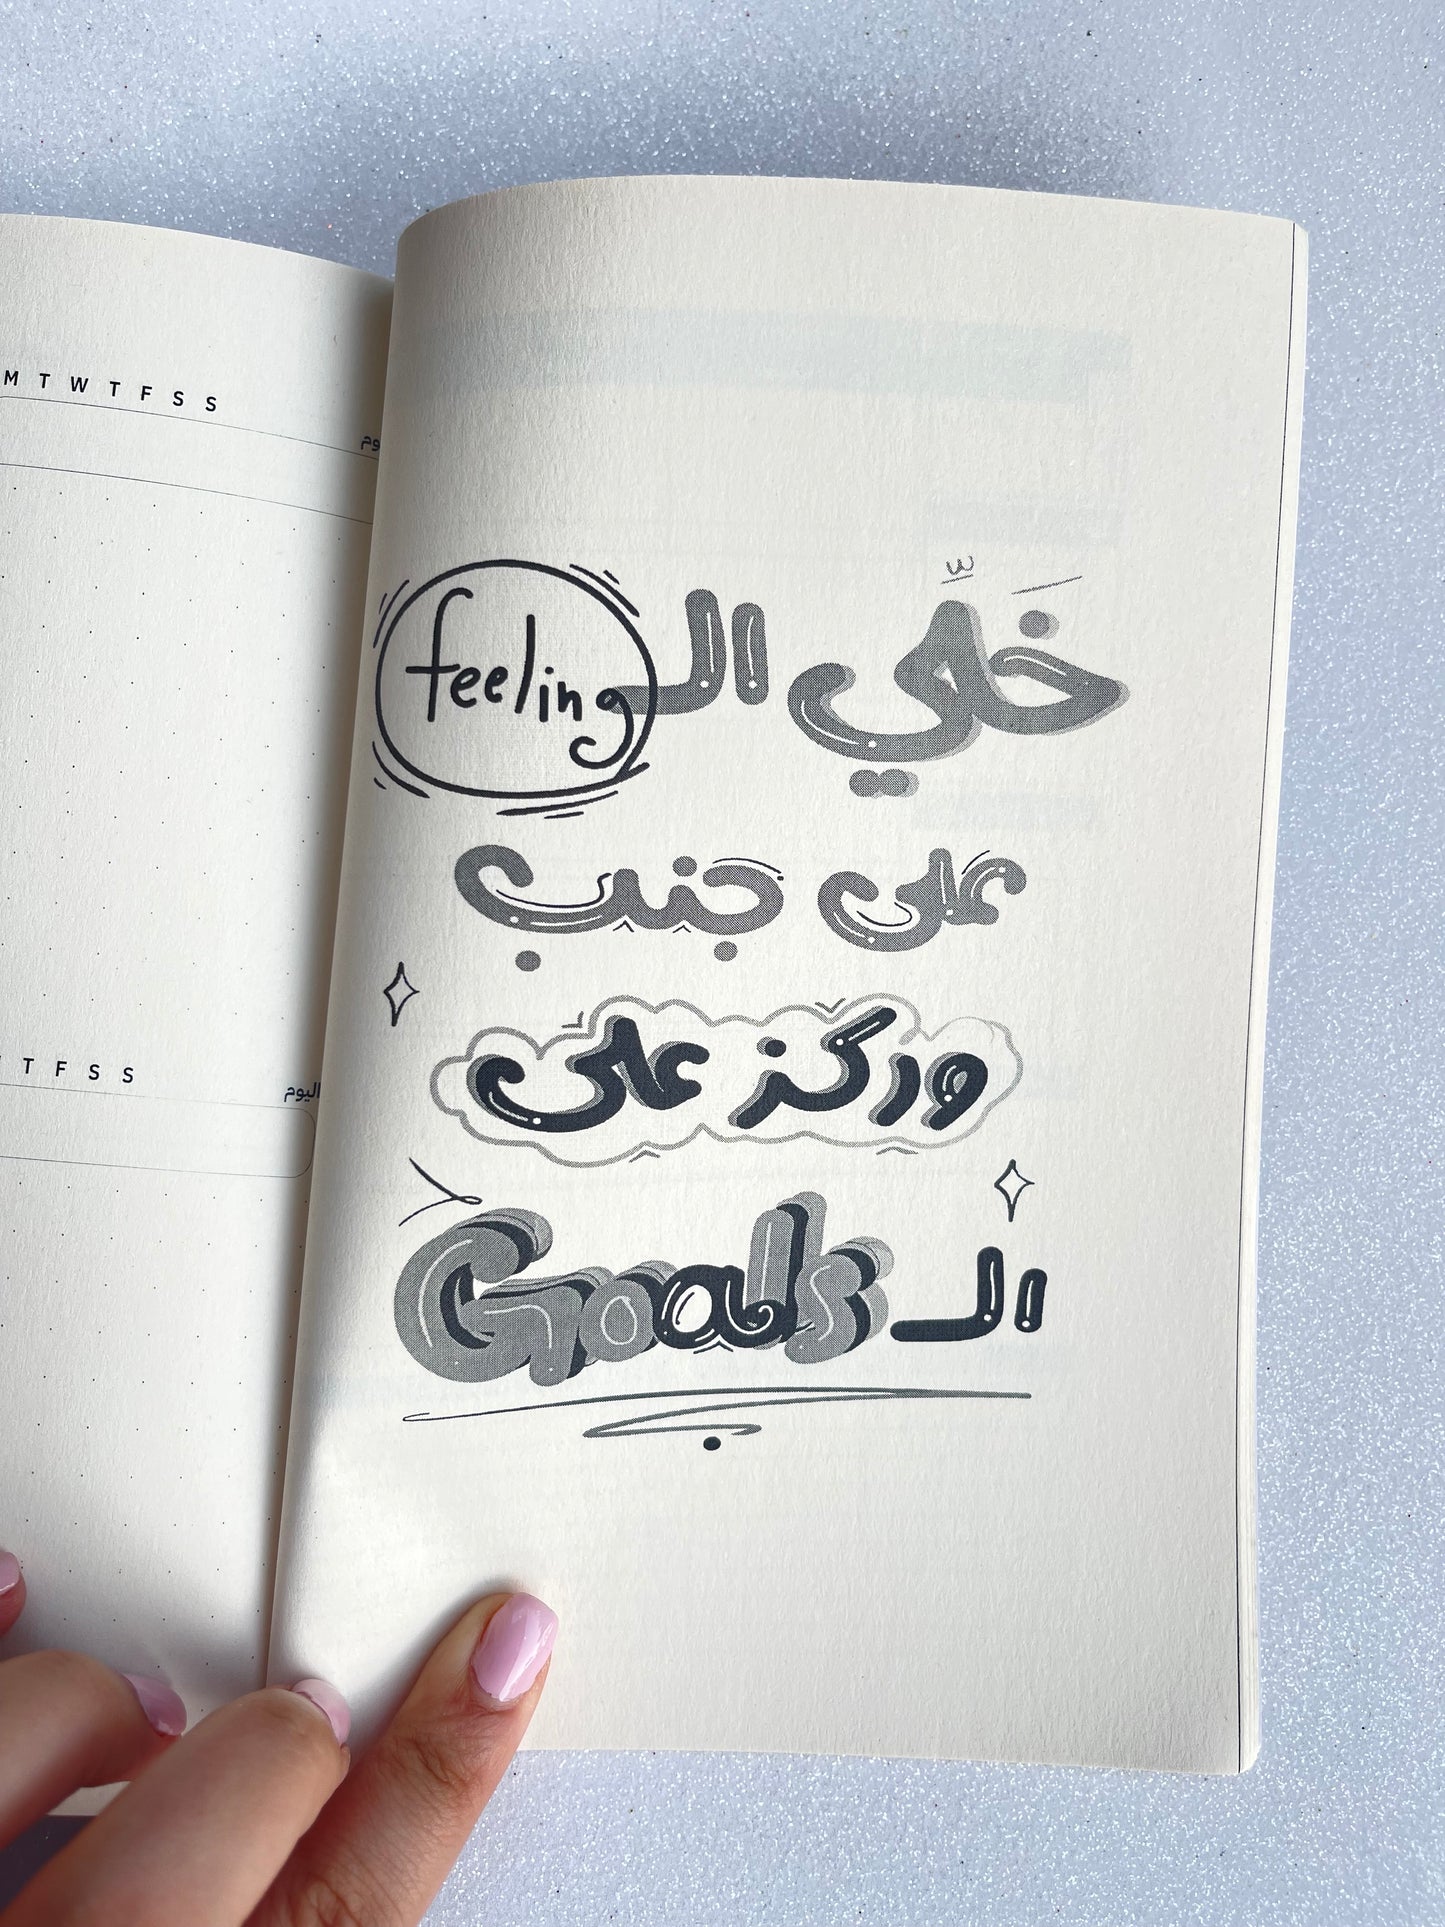 M T W T F S S
وم
T F S S
اليوم
خَلّي الـ feeling
على جنب
وركز على
الـ Goals